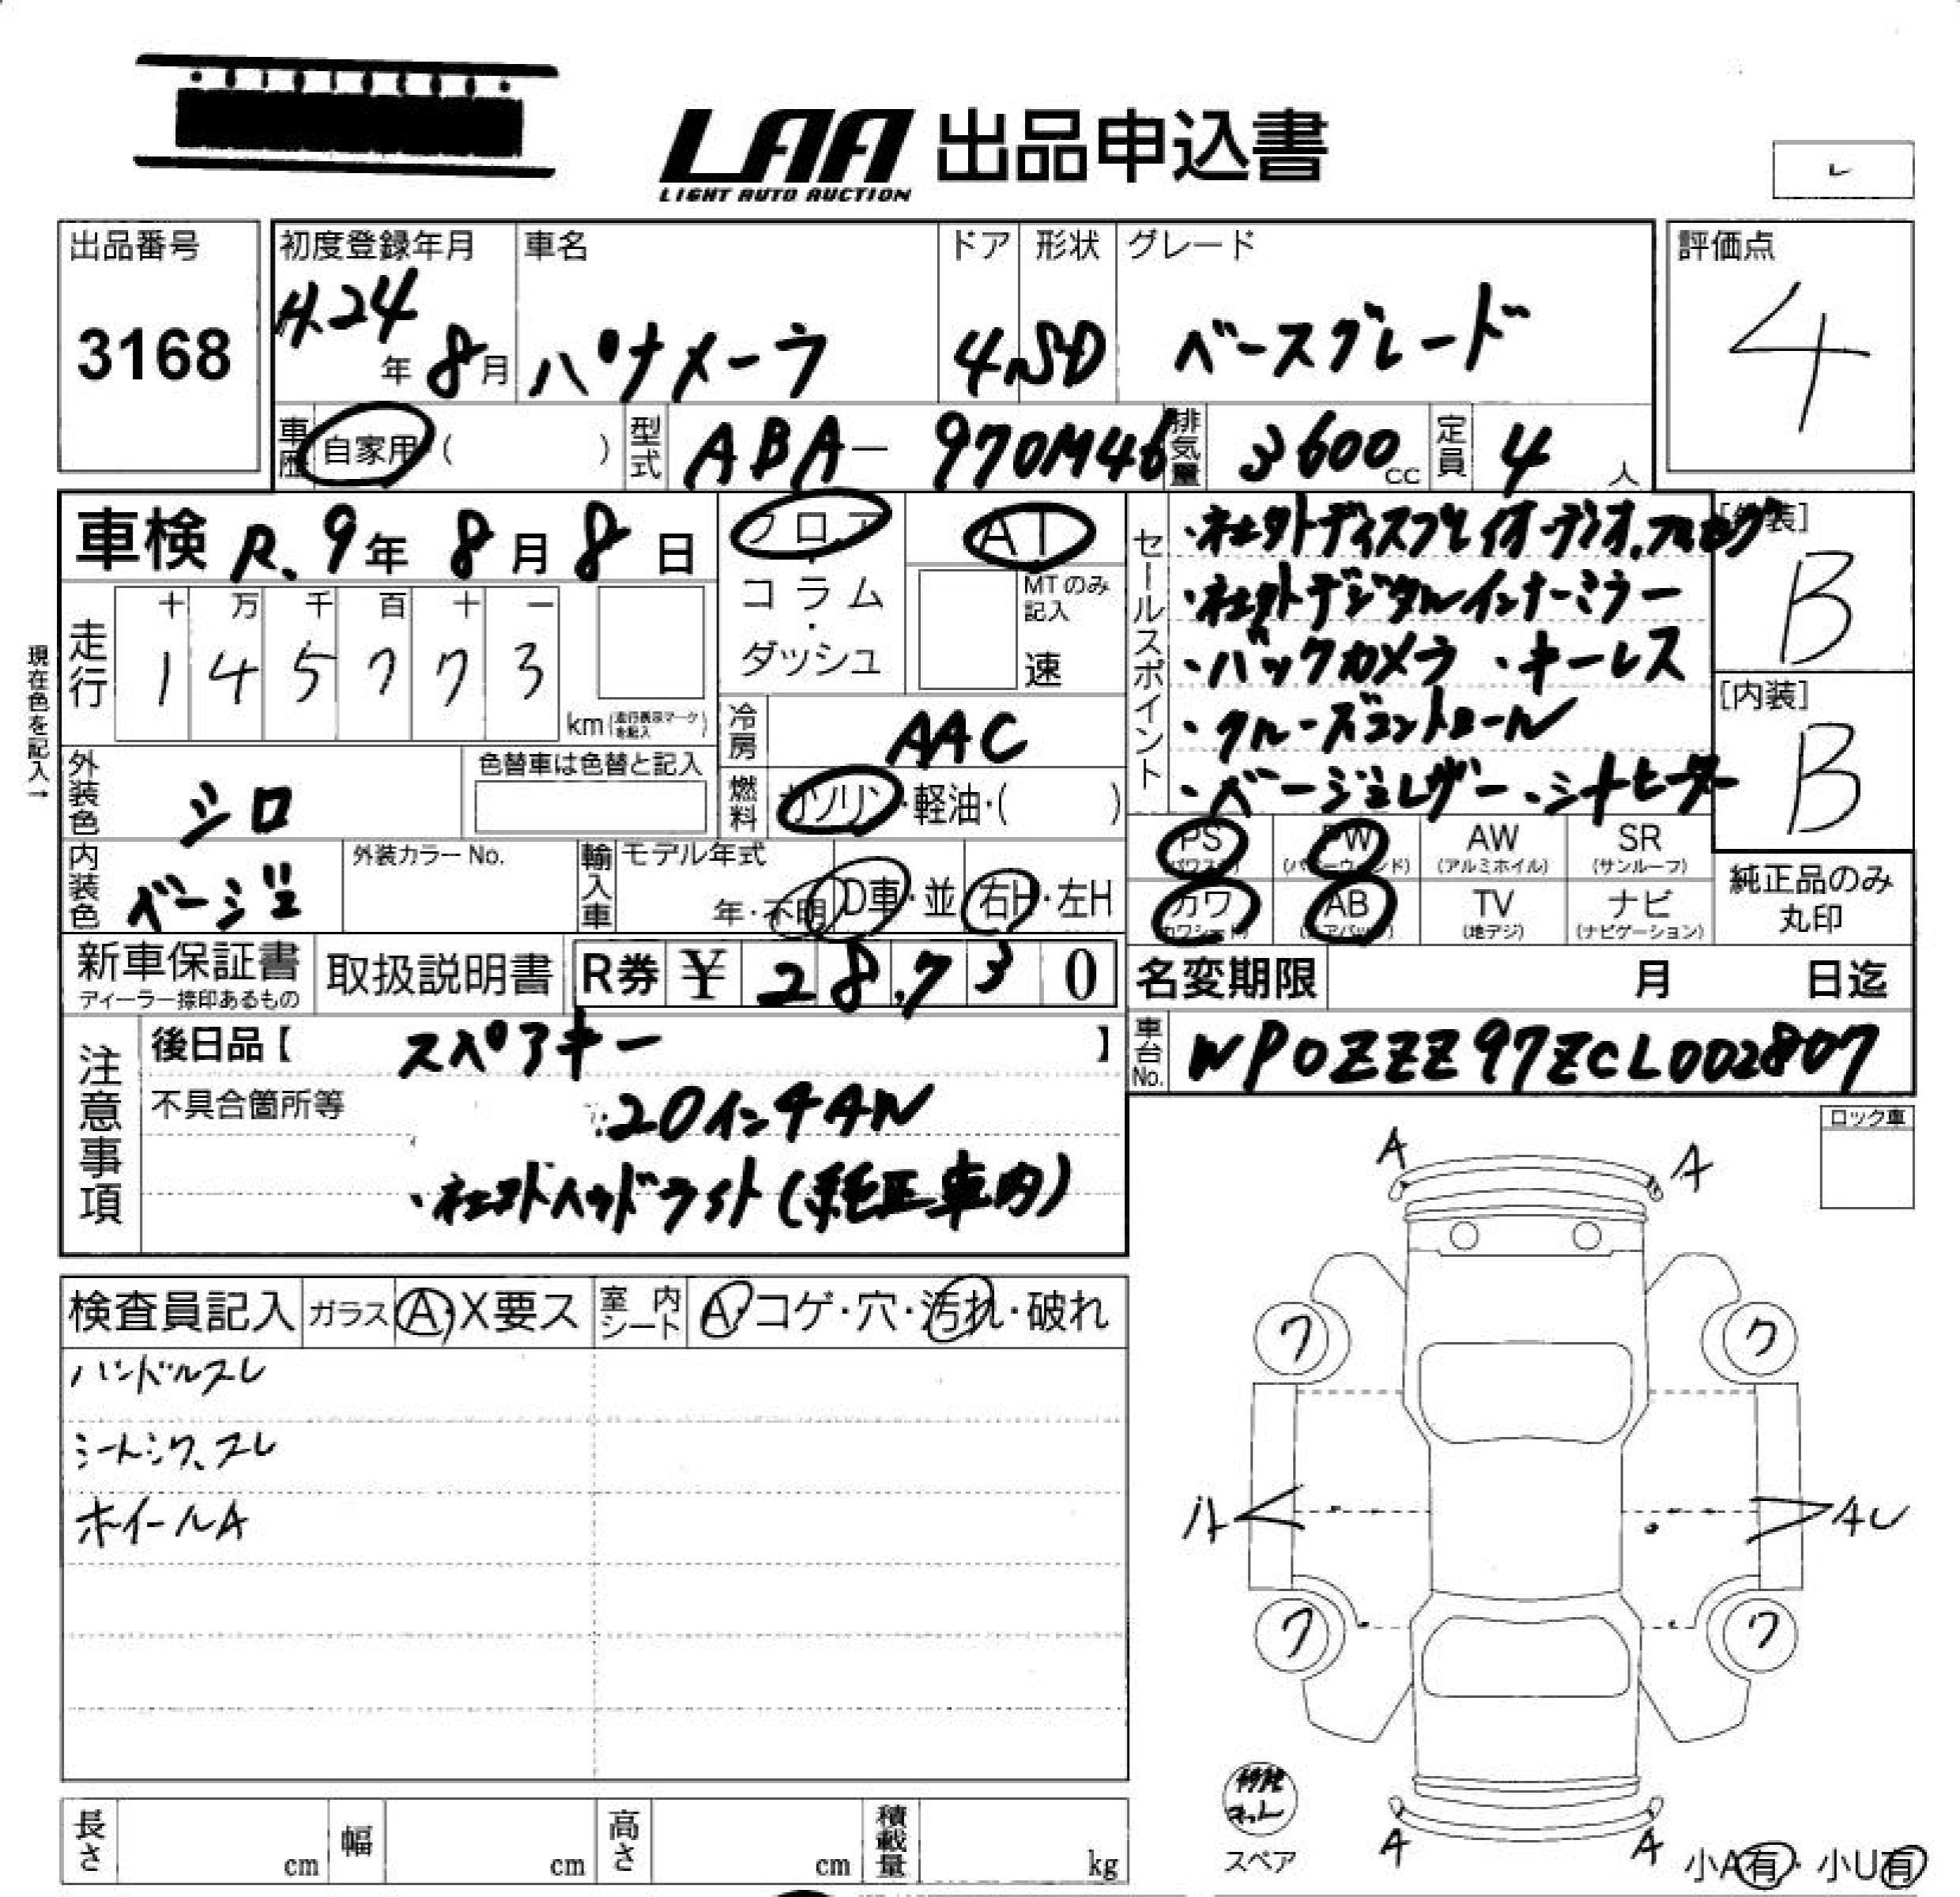 LAA 出品申込書
LIGHT AUTO AUCTION
レ
出品番号
3168
初度登録年月
H.24年 8月
車名
パナメーラ
ドア
4
形状
SD
グレード
ベースグレード
評価点
4
車歴 自家用 ( )
型式 ABA-970M46
排気量 3600cc
定員 4人
車検 R.9年 8月 8日
フロア・コラム・ダッシュ
AT
MTのみ記入
速
セールスポイント
・社外ディスプレイオーディオ.フルセグ
・社外デジタルインナーミラー
・バックカメラ ・キーレス
・クルーズコントロール
・ベージュレザー ・シートヒーター
[外装]
B
[内装]
B
現在色を記入→
走行
十 万 千 百 十 一
1 4 5 7 7 3
km (走行表示マークを記入)
冷房 AAC
外装色 シロ
色替車は色替と記入
燃料 ガソリン・軽油・( )
内装色 ベージュ
外装カラーNo.
輸入車 モデル年式
年・不明
D車・並
右H・左H
PS (パワステ)
PW (パワーウィンド)
AW (アルミホイル)
SR (サンルーフ)
カワ (カワシート)
AB (エアバッグ)
TV (地デジ)
ナビ (ナビゲーション)
純正品のみ丸印
新車保証書
ディーラー捺印あるもの
取扱説明書
R券 ¥ 28,730
名変期限 月 日迄
注意事項
後日品【 スペアキー 】
不具合箇所等
・20インチAW
・社外ヘッドライト(純正車内)
車台No. WP0ZZZ97ZCL002807
ロック車
検査員記入
ガラス A・X要ス
室内シート A・コゲ・穴・汚れ・破れ
ハンドルスレ
シートシワ、スレ
ホイールA
A A
ワ ワ
AU
ワ ワ
スペア
A A
小A有・小U有
長さ cm
幅 cm
高さ cm
積載量 kg